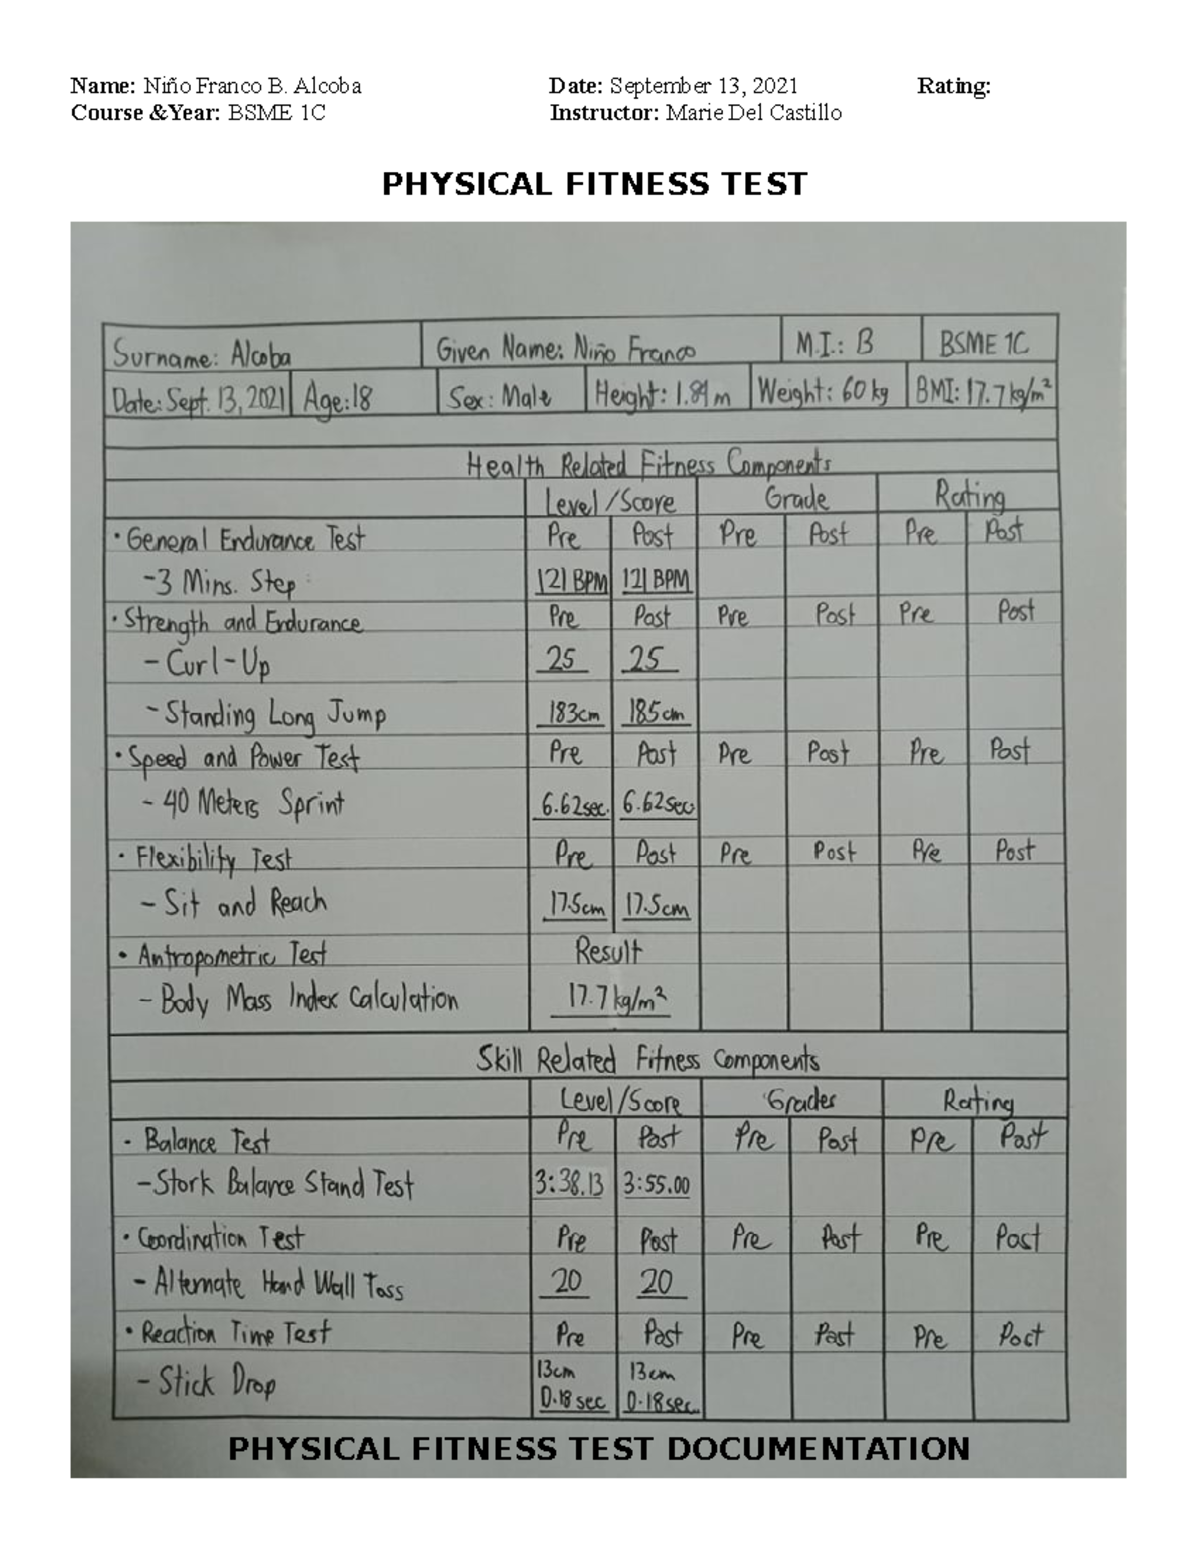 Name: Niño Franco B. Alcoba Date: September 13, 2021 Rating:
Course &Year: BSME 1C Instructor: Marie Del Castillo
PHYSICAL FITNESS TEST
Surname: Alcoba Given Name: Niño Franco M.I.: B BSME 1C
Date: Sept. 13, 2021 Age: 18 Sex: Male Height: 1.84 m Weight: 60 kg BMI: 17.7 kg/m²
Health Related Fitness Components
Level/Score Grade Rating
• General Endurance Test Pre Post Pre Post Pre Post
- 3 Mins. Step 121 BPM 121 BPM
• Strength and Endurance Pre Post Pre Post Pre Post
- Curl-Up 25 25
- Standing Long Jump 183cm 185cm
• Speed and Power Test Pre Post Pre Post Pre Post
- 40 Meters Sprint 6.62sec. 6.62sec.
• Flexibility Test Pre Post Pre Post Pre Post
- Sit and Reach 17.5cm 17.5cm
• Antropometric Test Result
- Body Mass Index Calculation 17.7 kg/m²
Skill Related Fitness Components
Level/Score Grades Rating
• Balance Test Pre Post Pre Post Pre Post
- Stork Balance Stand Test 3:38.13 3:55.00
• Coordination Test Pre Post Pre Post Pre Post
- Alternate Hand Wall Toss 20 20
• Reaction Time Test Pre Post Pre Post Pre Post
- Stick Drop 13cm 13cm
0.18 sec 0.18sec.
PHYSICAL FITNESS TEST DOCUMENTATION